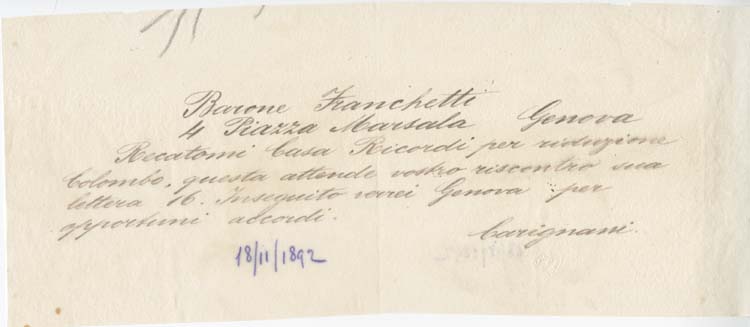 Barone Franchetti
4 Piazza Marsala Genova
Recatomi Casa Ricordi per riduzione
Colombo, questa attende vostro riscontro sua
lettera 16. Inseguito verrei Genova per
opportuni accordi.
Carignani.
18/11/1892